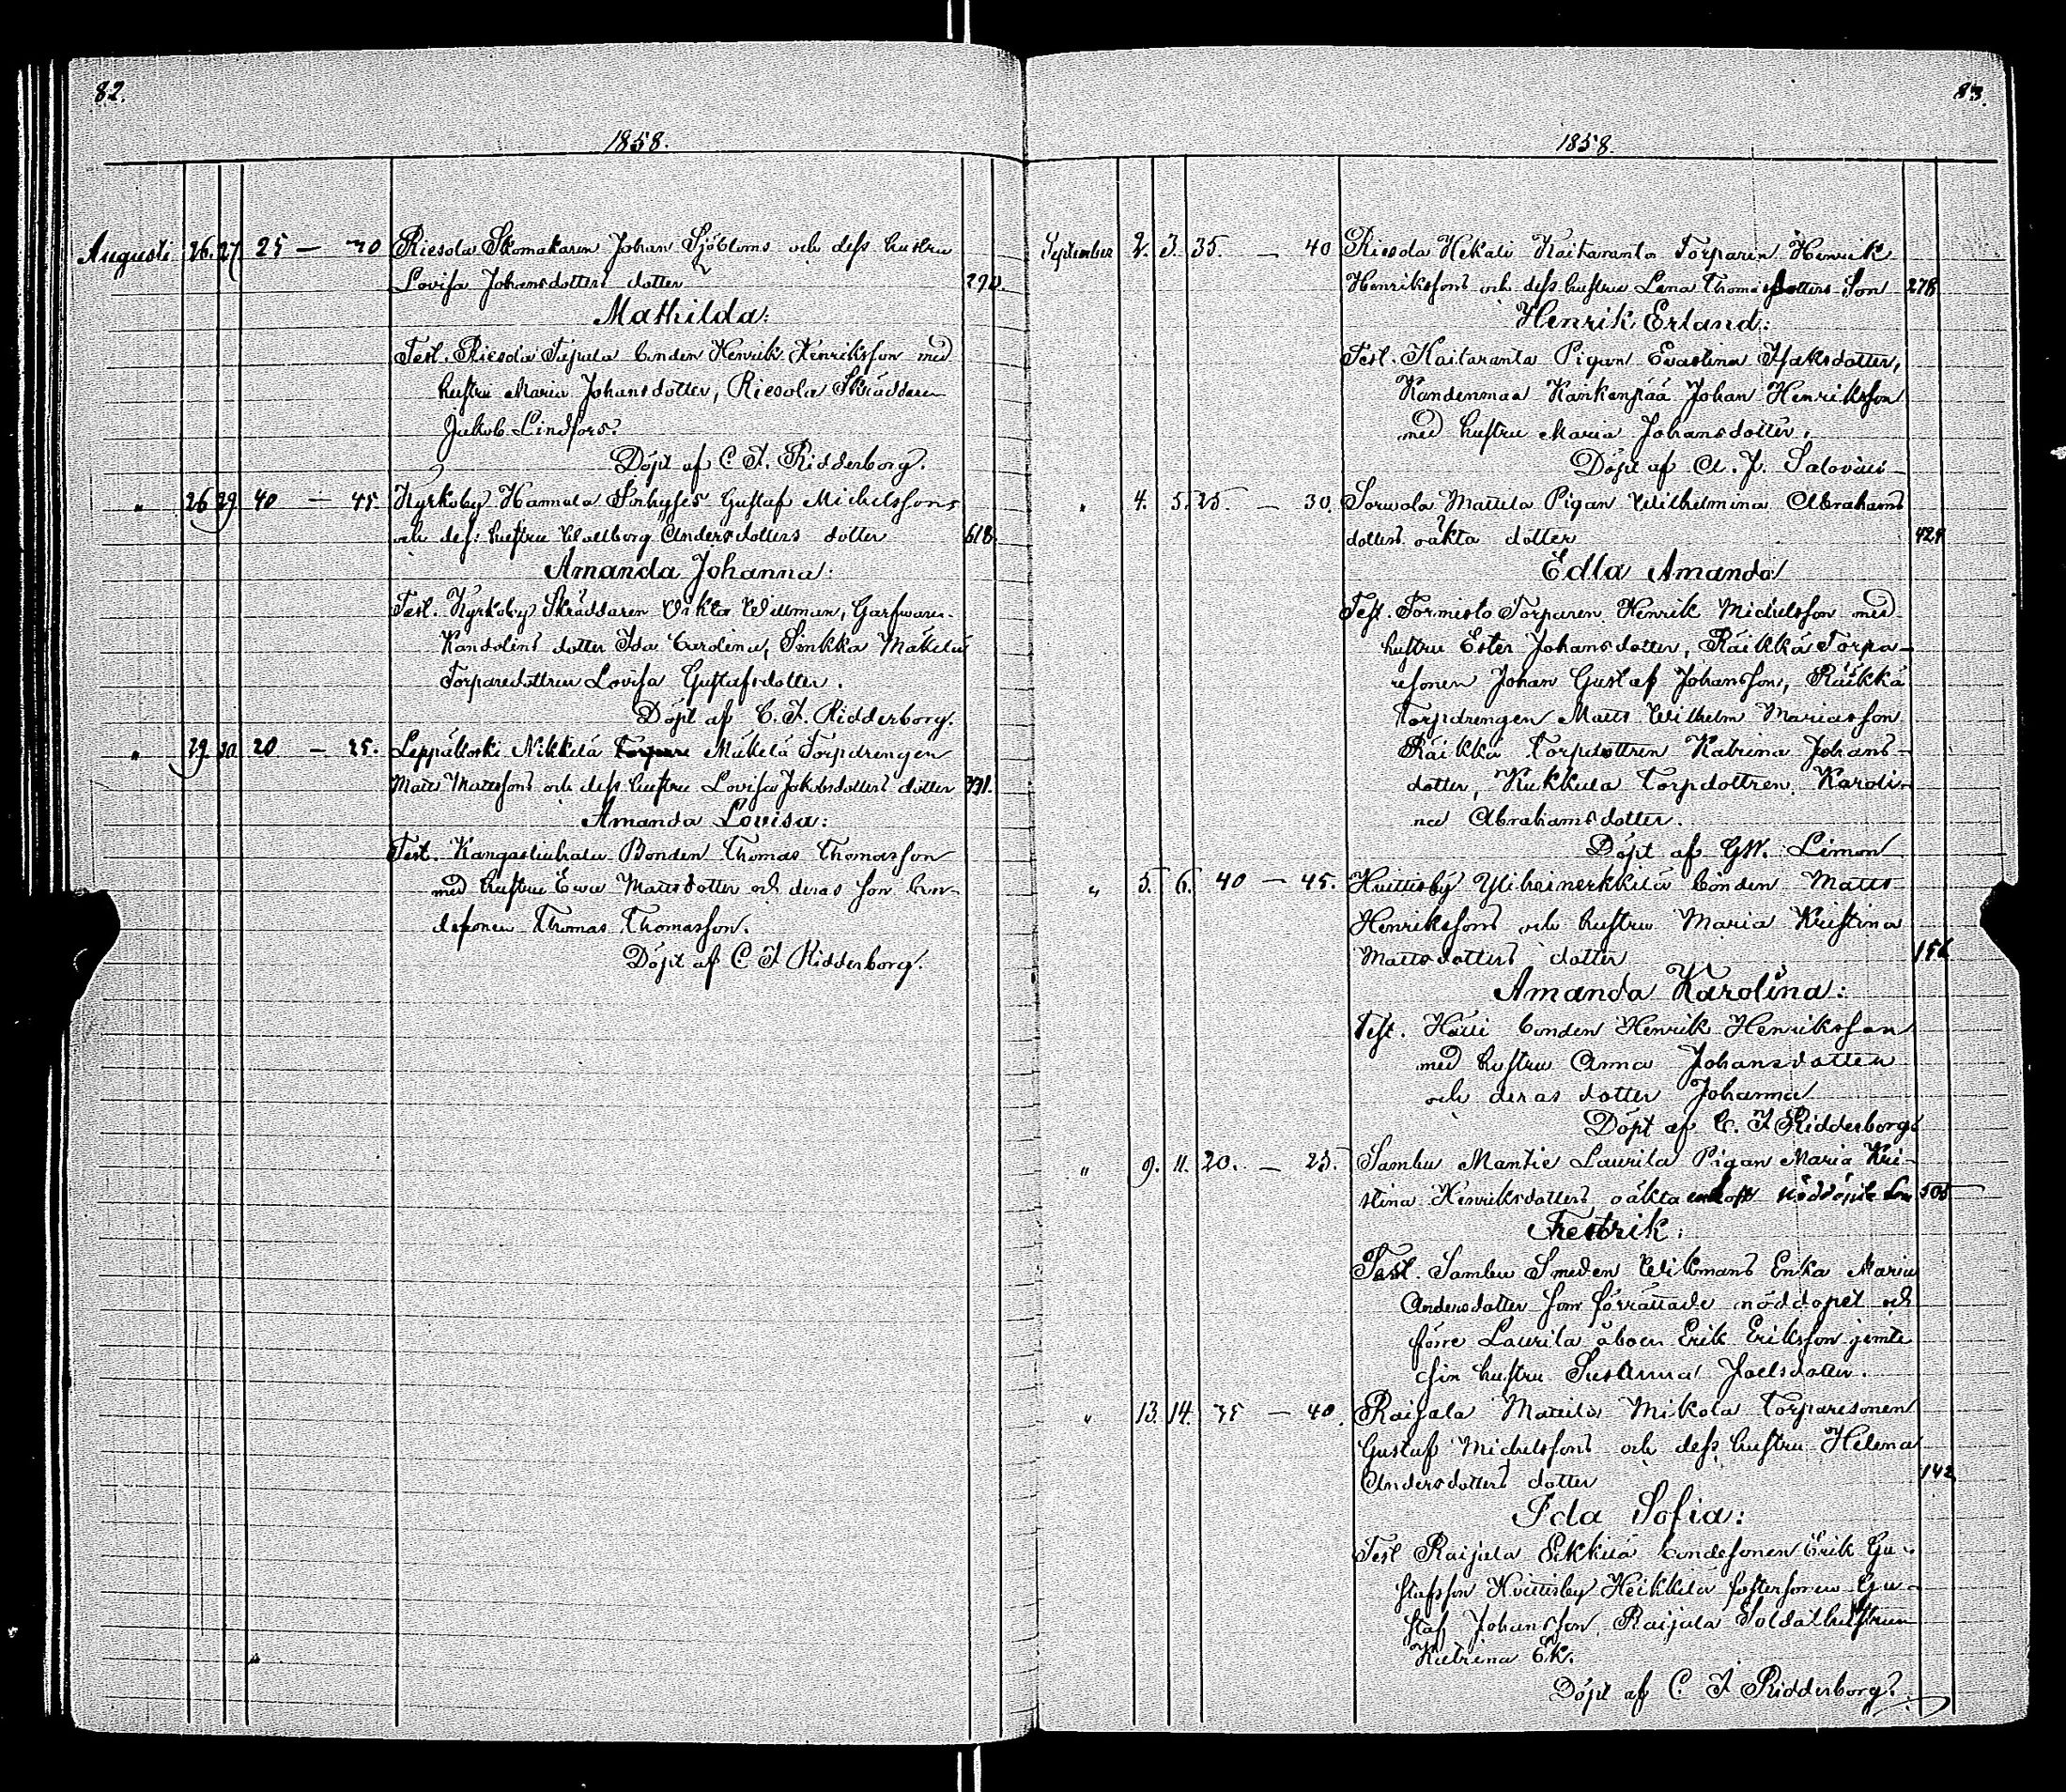 82.
1858.
Augusti 26. 27. 25 — 30 Riesola Skomakaren Johan Sjöbloms och dess hustru
Lovisa Johansdotters dotter 290.
Mathilda:
Test. Riesola Tujula bonden Henrik Henriksson med
hustru Maria Johansdotter, Riesola Skräddaren
Jakob Lindfors.
Döpt af C F. Ridderborg.
" 26 29 40 — 45. Kyrkoby Hannula Inhyses Gustaf Michelssons
och dess hustru Wallborg Andersdotters dotter 618.
Amanda Johanna:
Test. Kyrkoby Skräddaren Wiktor Willman, Garfvaren
Kandolins dotter Ida Carolina, Sinkka Mäkelä
Torparedottren Lovisa Gustafsdotter.
Döpt af C. F. Ridderborg.
" 29. 30 20 — 25. Leppäkoski Nikkilä Mäkelä Torpdrengen
Matts Mattssons och dess hustru Lovisa Jakobsdotters dotter 391.
Amanda Lovisa:
Test. Bonden Thomas Thomasson
med hustru Ewa Mattsdotter och deras son bon-
desonen Thomas Thomasson.
Döpt af C F Ridderborg.
83.
1858.
September 2. 3. 35. — 40 Riesola Hekali Kaitaranta Torparen Henrik
Henrikssons och dess hustru Lena Thomasdotters Son 278
Henrik Erland:
Test. Kaitaranta Pigan Evastina Isaksdotter,
Kandenmaa Kankanpää Johan Henriksson
med hustru Maria Johansdotter.
Döpt af A. J. Salovius
" 4. 5. 25. — 30. Sorvola Mattila Pigan Wilhelmina Abrahams
dotters oäkta dotter 424
Edla Amanda
Test. Tormisto Torparen Henrik Michelsson med
hustru Ester Johansdotter, Räikkä Torpa-
resonen Johan Gustaf Johansson, Räikkä
Torpdrengen Matts Wilhelm Mariasson
Räikkä Torpdottren Katrina Johans-
dotter, Kukkula Torpdottren Karoli-
na Abrahamsdotter.
Döpt af GW. Limon
" 5. 6. 40 — 45. Huittisby Yliheinerkkilä bonden Matts
Henrikssons och hustru Maria Kristina
Mattsdotters dotter 156
Amanda Karolina:
Test. bonden Henrik Henriksson
med hustru Anna Johansdotter
och deras dotter Johanna
Döpt af C. F Ridderborg.
" 9. 11. 20. — 25. Sambu Mantie Laurila Pigan Maria Kri-
stina Henriksdotters oäkta nöddöpte Son 505
Fredrik:
Test. Sambu Smeden Wikmans Enka Maria
Andersdotter som förrättade nöddopet och
förre Laurila åboen Erik Eriksson jemte
sin hustru Susanna Joelsdotter.
" 13. 14. 35 — 40. Raijala Mattila Mikola Torparesonen
Gustaf Michelssons och dess hustru Helena
Andersdotters dotter 142
Ida Sofia:
Test Raijala bondesonen Erik Gu-
stafsson Huittisby Heikkilä fostersonen Gu-
staf Johansson, Raijala Soldathustrun
Katrina Ek.
Döpt af C F Ridderborg.